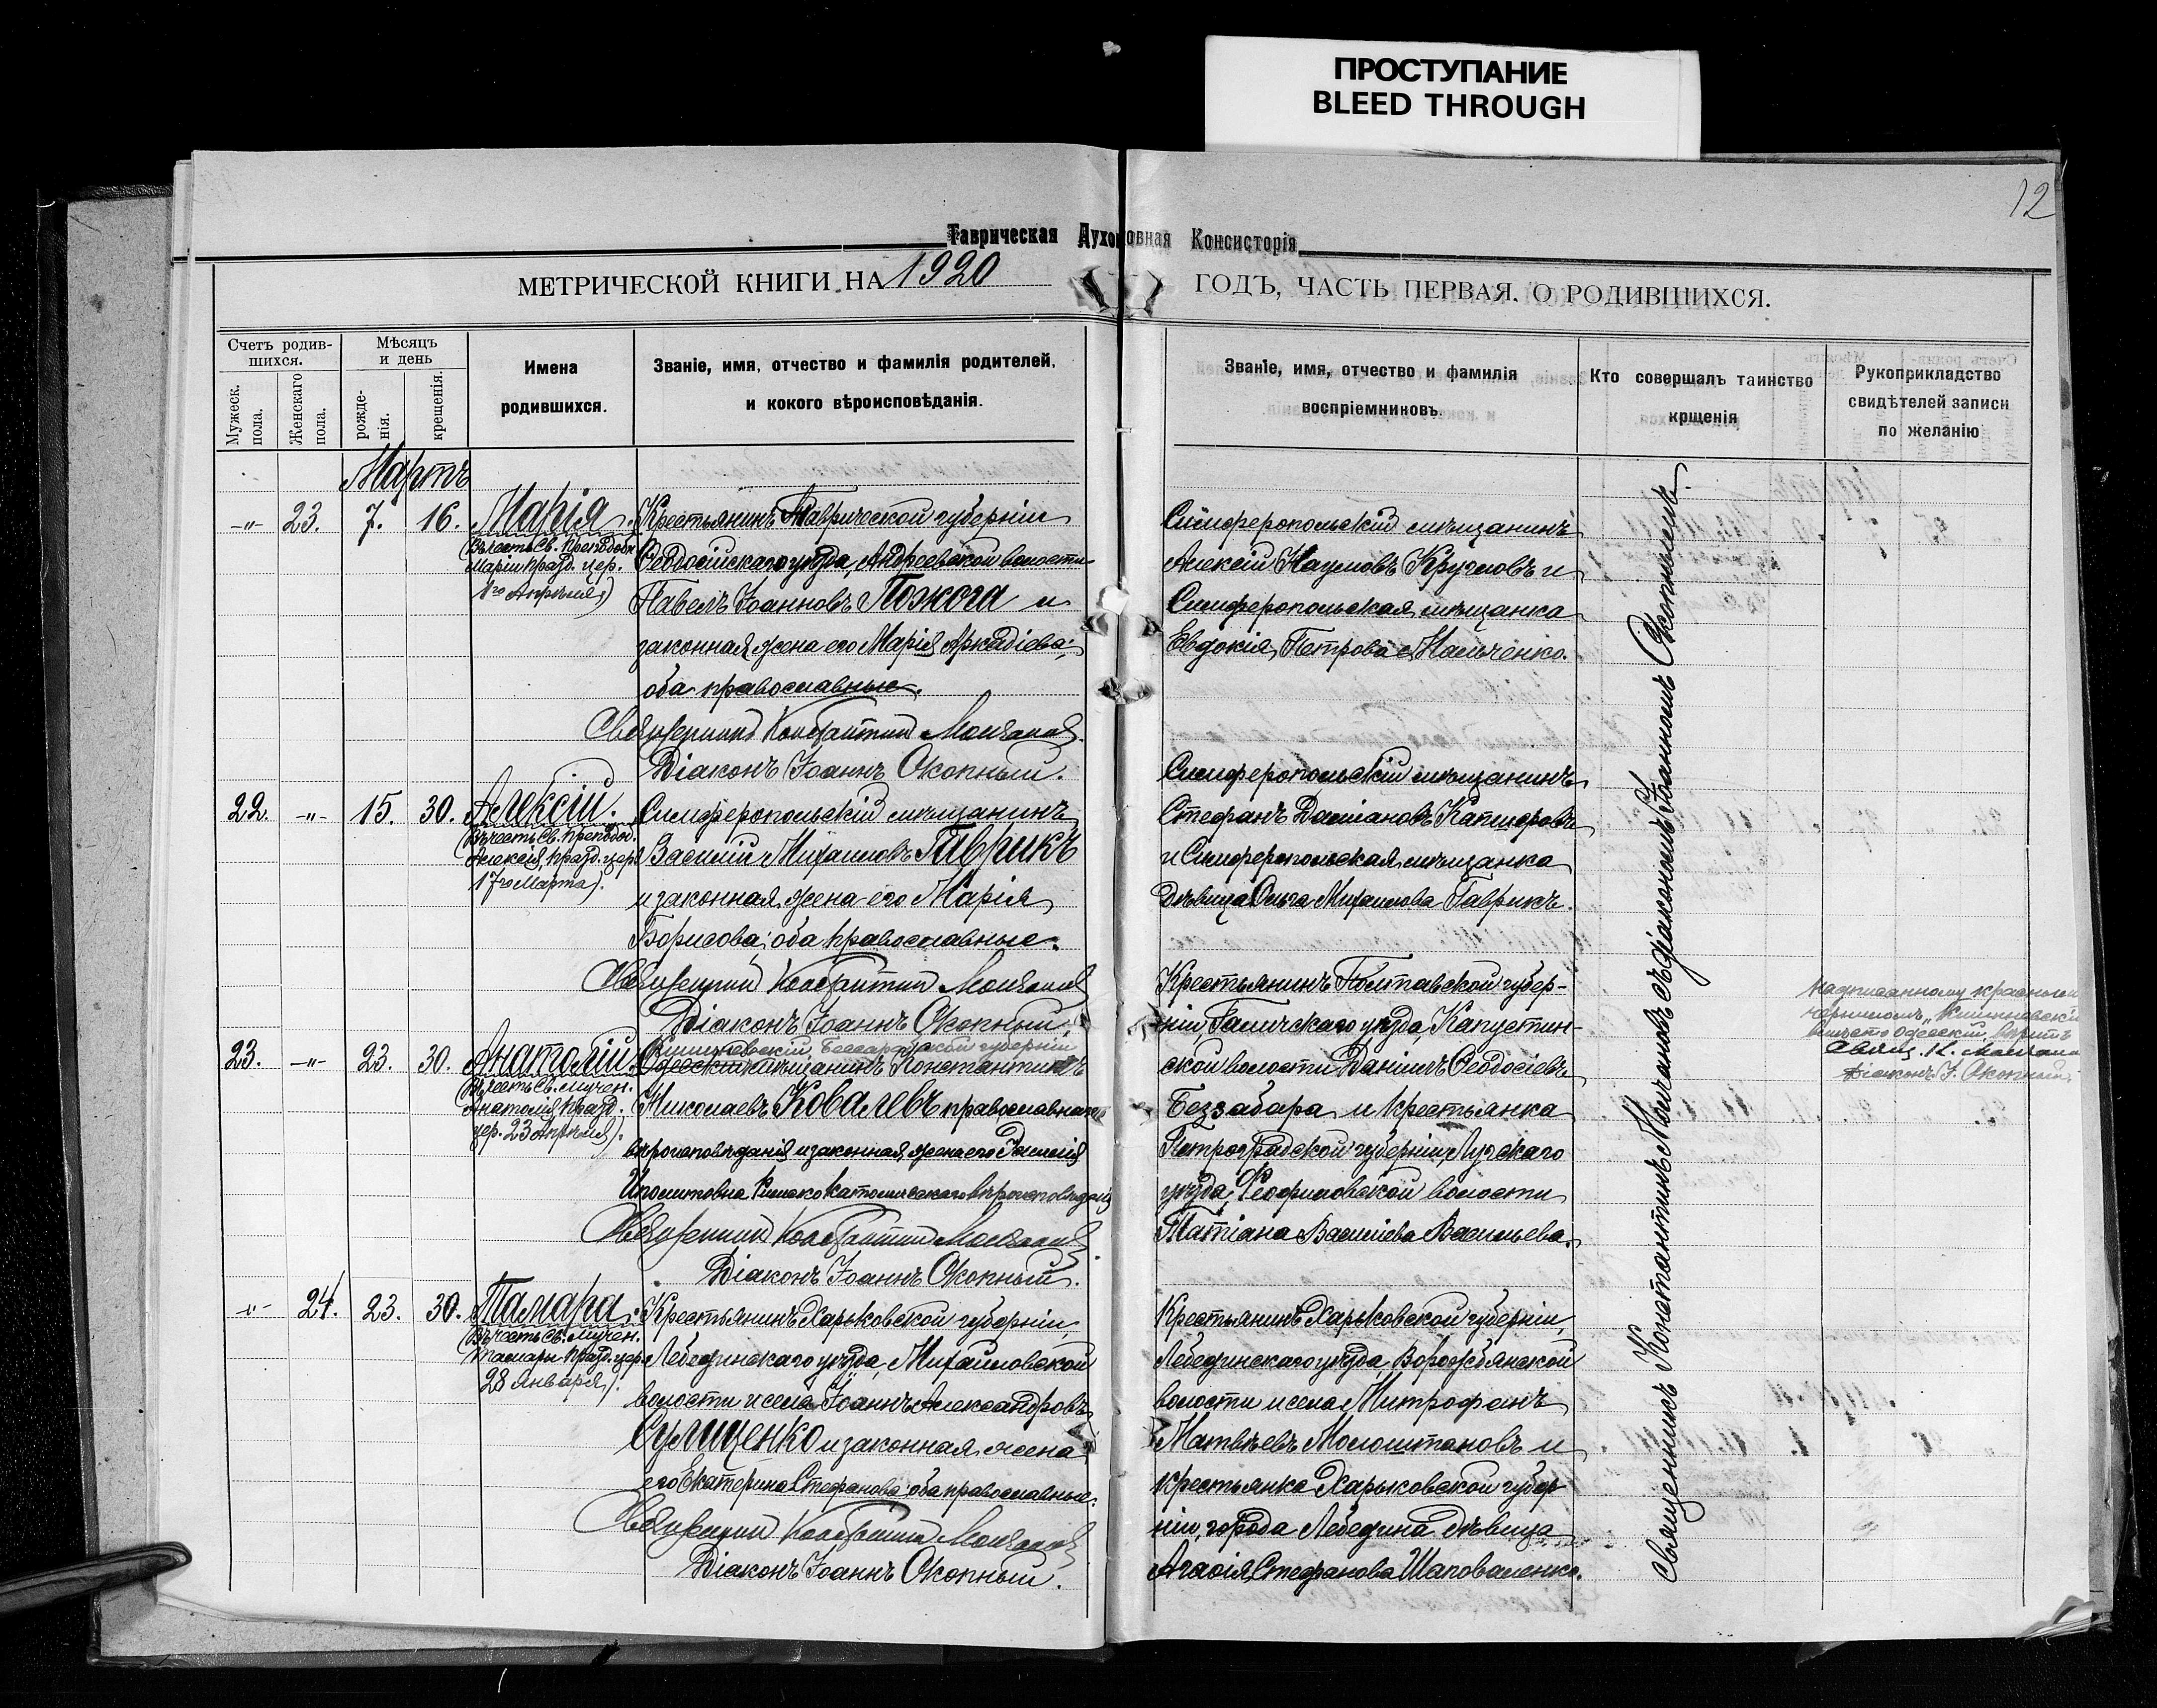 ПРОСТУПАНИЕ
BLEED THROUGH
12
Таврическая Духовная Консисторія
МЕТРИЧЕСКОЙ КНИГИ НА 1920 ГОДЪ, ЧАСТЬ ПЕРВАЯ. О РОДИВШИХСЯ.
Счетъ родив-
шихся.
Мужеск.
пола.
Женскаго
пола.
Мѣсяцъ
и день
рожде-
нія.
крещенія.
Имена
родившихся.
Званіе, имя, отчество и фамилія родителей,
и кокого вѣроисповѣданія.
Званіе, имя, отчество и фамилія
воспріемниковъ.
Кто совершалъ таинство
крщенія
Рукоприкладство
свидѣтелей записи
по желанію
Мартъ
-"- 23. 7. 16. Марія.
(Въ честь Св. Преподобн.
Маріи празд. цер.
1го Апрѣля)
Крестьянинъ Таврической губерніи
Ѳеодосійскаго уѣзда, Андреевской волости
Павелъ Іоанновъ Пожога и
законная жена его Марія Аркадіева;
оба православные.
Священникъ Константинъ Молчановъ.
Діаконъ Іоаннъ Окопный.
Симферопольскій мѣщанинъ
Алексій Наумовъ Кругловъ и
Симферопольская мѣщанка
Евдокія Петрова Нальченко.
22. -"- 15. 30. Алексій.
(Въ честь Св. Преподоб.
Алексія, празд. цер.
17го Марта).
Симферопольскій мѣщанинъ
Василій Михаиловъ Гаврикъ
и законная жена его Марія
Борисова; оба православные.
Священникъ Константинъ Молчановъ
Діаконъ Іоаннъ Окопный.
Симферопольскій мѣщанинъ
Стефанъ Даміановъ
и Симферопольская мѣщанка
дѣвица Ольга Михаилова Гаврикъ.
23. -"- 23. 30. Анатолій.
(Въ честь Св. Мучен.
Анатолія, празд.
цер. 23 Апрѣля).
Кишиневскій, Бессарабской губерніи
Одесскій мѣщанинъ Константинъ
Николаевъ Ковалевъ православнаго
вѣроисповѣданія и законная жена его
Иполитовна Римско Католическаго вѣроисповѣданія
Священникъ Константинъ Молчановъ
Діаконъ Іоаннъ Окопный.
Крестьянинъ Полтавской губер-
ніи, Гадячскаго уѣзда, Капустин-
ской волости Даніилъ Ѳеодосіевъ
Беззабара и крестьянка
Петроградской губерніи, Лужскаго
уѣзда, Феофиловской волости
Татіана Василіева Васильева.
Надписанному красными
чернилом, "Кишиневскій
вмѣсто Одесскій, вѣрить
Свящ. К. Молчановъ
Діаконъ І. Окопный.
-"- 24. 23. 30. Тамара.
(Въ честь Св. Мучен.
Тамары празд. цер.
28 Января).
Крестьянинъ Харьковской губерніи,
Лебединскаго уѣзда, Михайловской
волости и села Іоаннъ Александровъ
Сулищенко и законная жена
его Екатерина Стефанова; оба православные.
Священникъ Константинъ Молчановъ
Діаконъ Іоаннъ Окопный.
Крестьянинъ Харьковской губерніи,
Лебединскаго уѣзда, Ворожбянской
волости и села Митрофанъ
Матвѣевъ Молоштановъ и
крестьянка Харьковской губер
ніи, города Лебедина дѣвица
Агафія Стефанова Шаповаленко.
Священникъ Константинъ Молчановъ съ діакономъ Іоанномъ Окопнымъ.